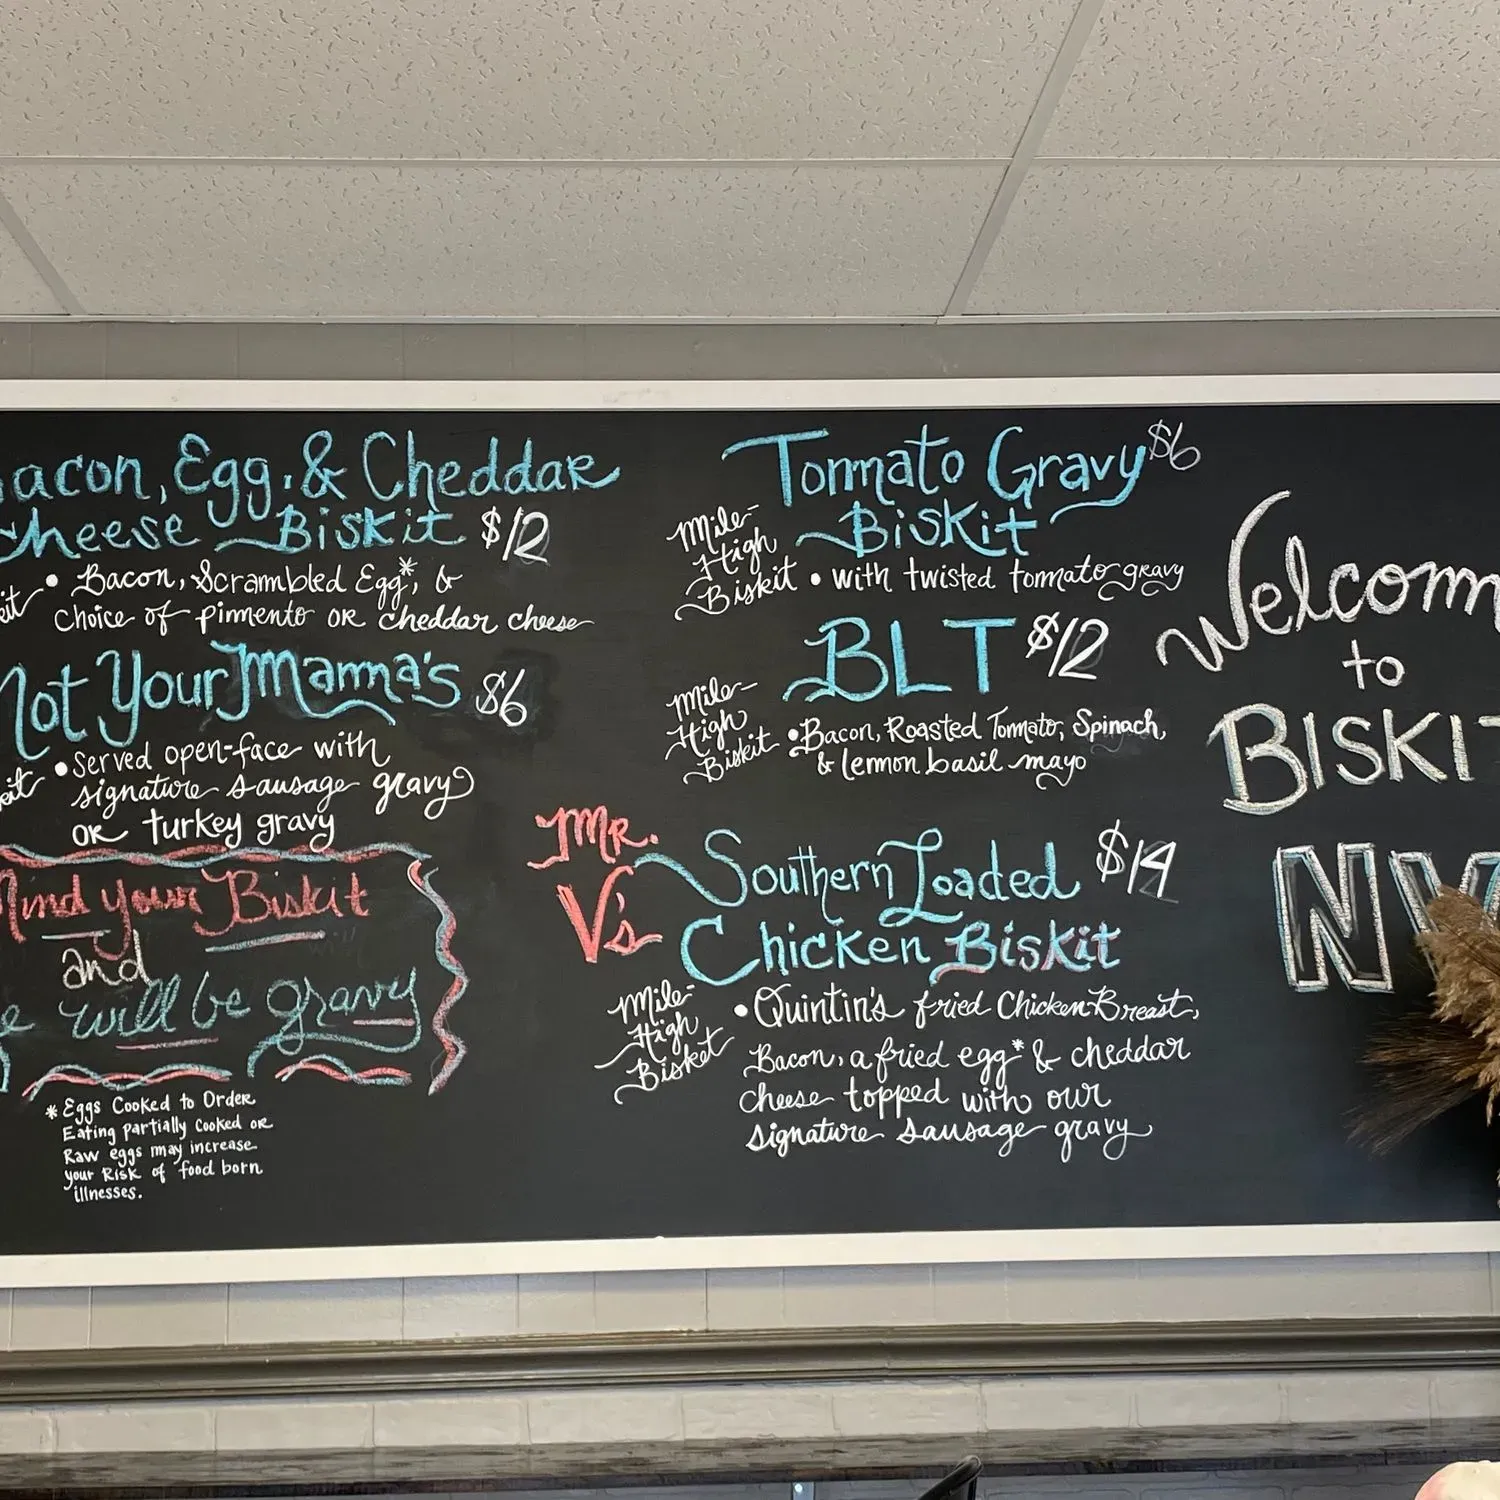 acon, Egg, & Cheddar
Cheese Biskit $12
• Bacon, Scrambled Egg*, &
Choice of pimento or cheddar cheese
Not Your Mama's $6
• Served open-face with
signature sausage gravy
or turkey gravy
Mind your Biskit
and
will be gravy
* Eggs Cooked to Order
Eating partially cooked or
Raw eggs may increase
your Risk of food born
illnesses.
Tomato Gravy $6
Biskit
Mile-
High
Biskit
• with twisted tomato gravy
BLT $12
Mile-
High
Biskit
• Bacon, Roasted Tomato, Spinach,
& lemon basil mayo
Mr.
V's
Southern Loaded $14
Chicken Biskit
Mile-
High
Bisket
• Quintin's fried Chicken Breast,
Bacon, a fried egg* & cheddar
cheese topped with our
signature sausage gravy
Welcom
to
BISKIT
NV